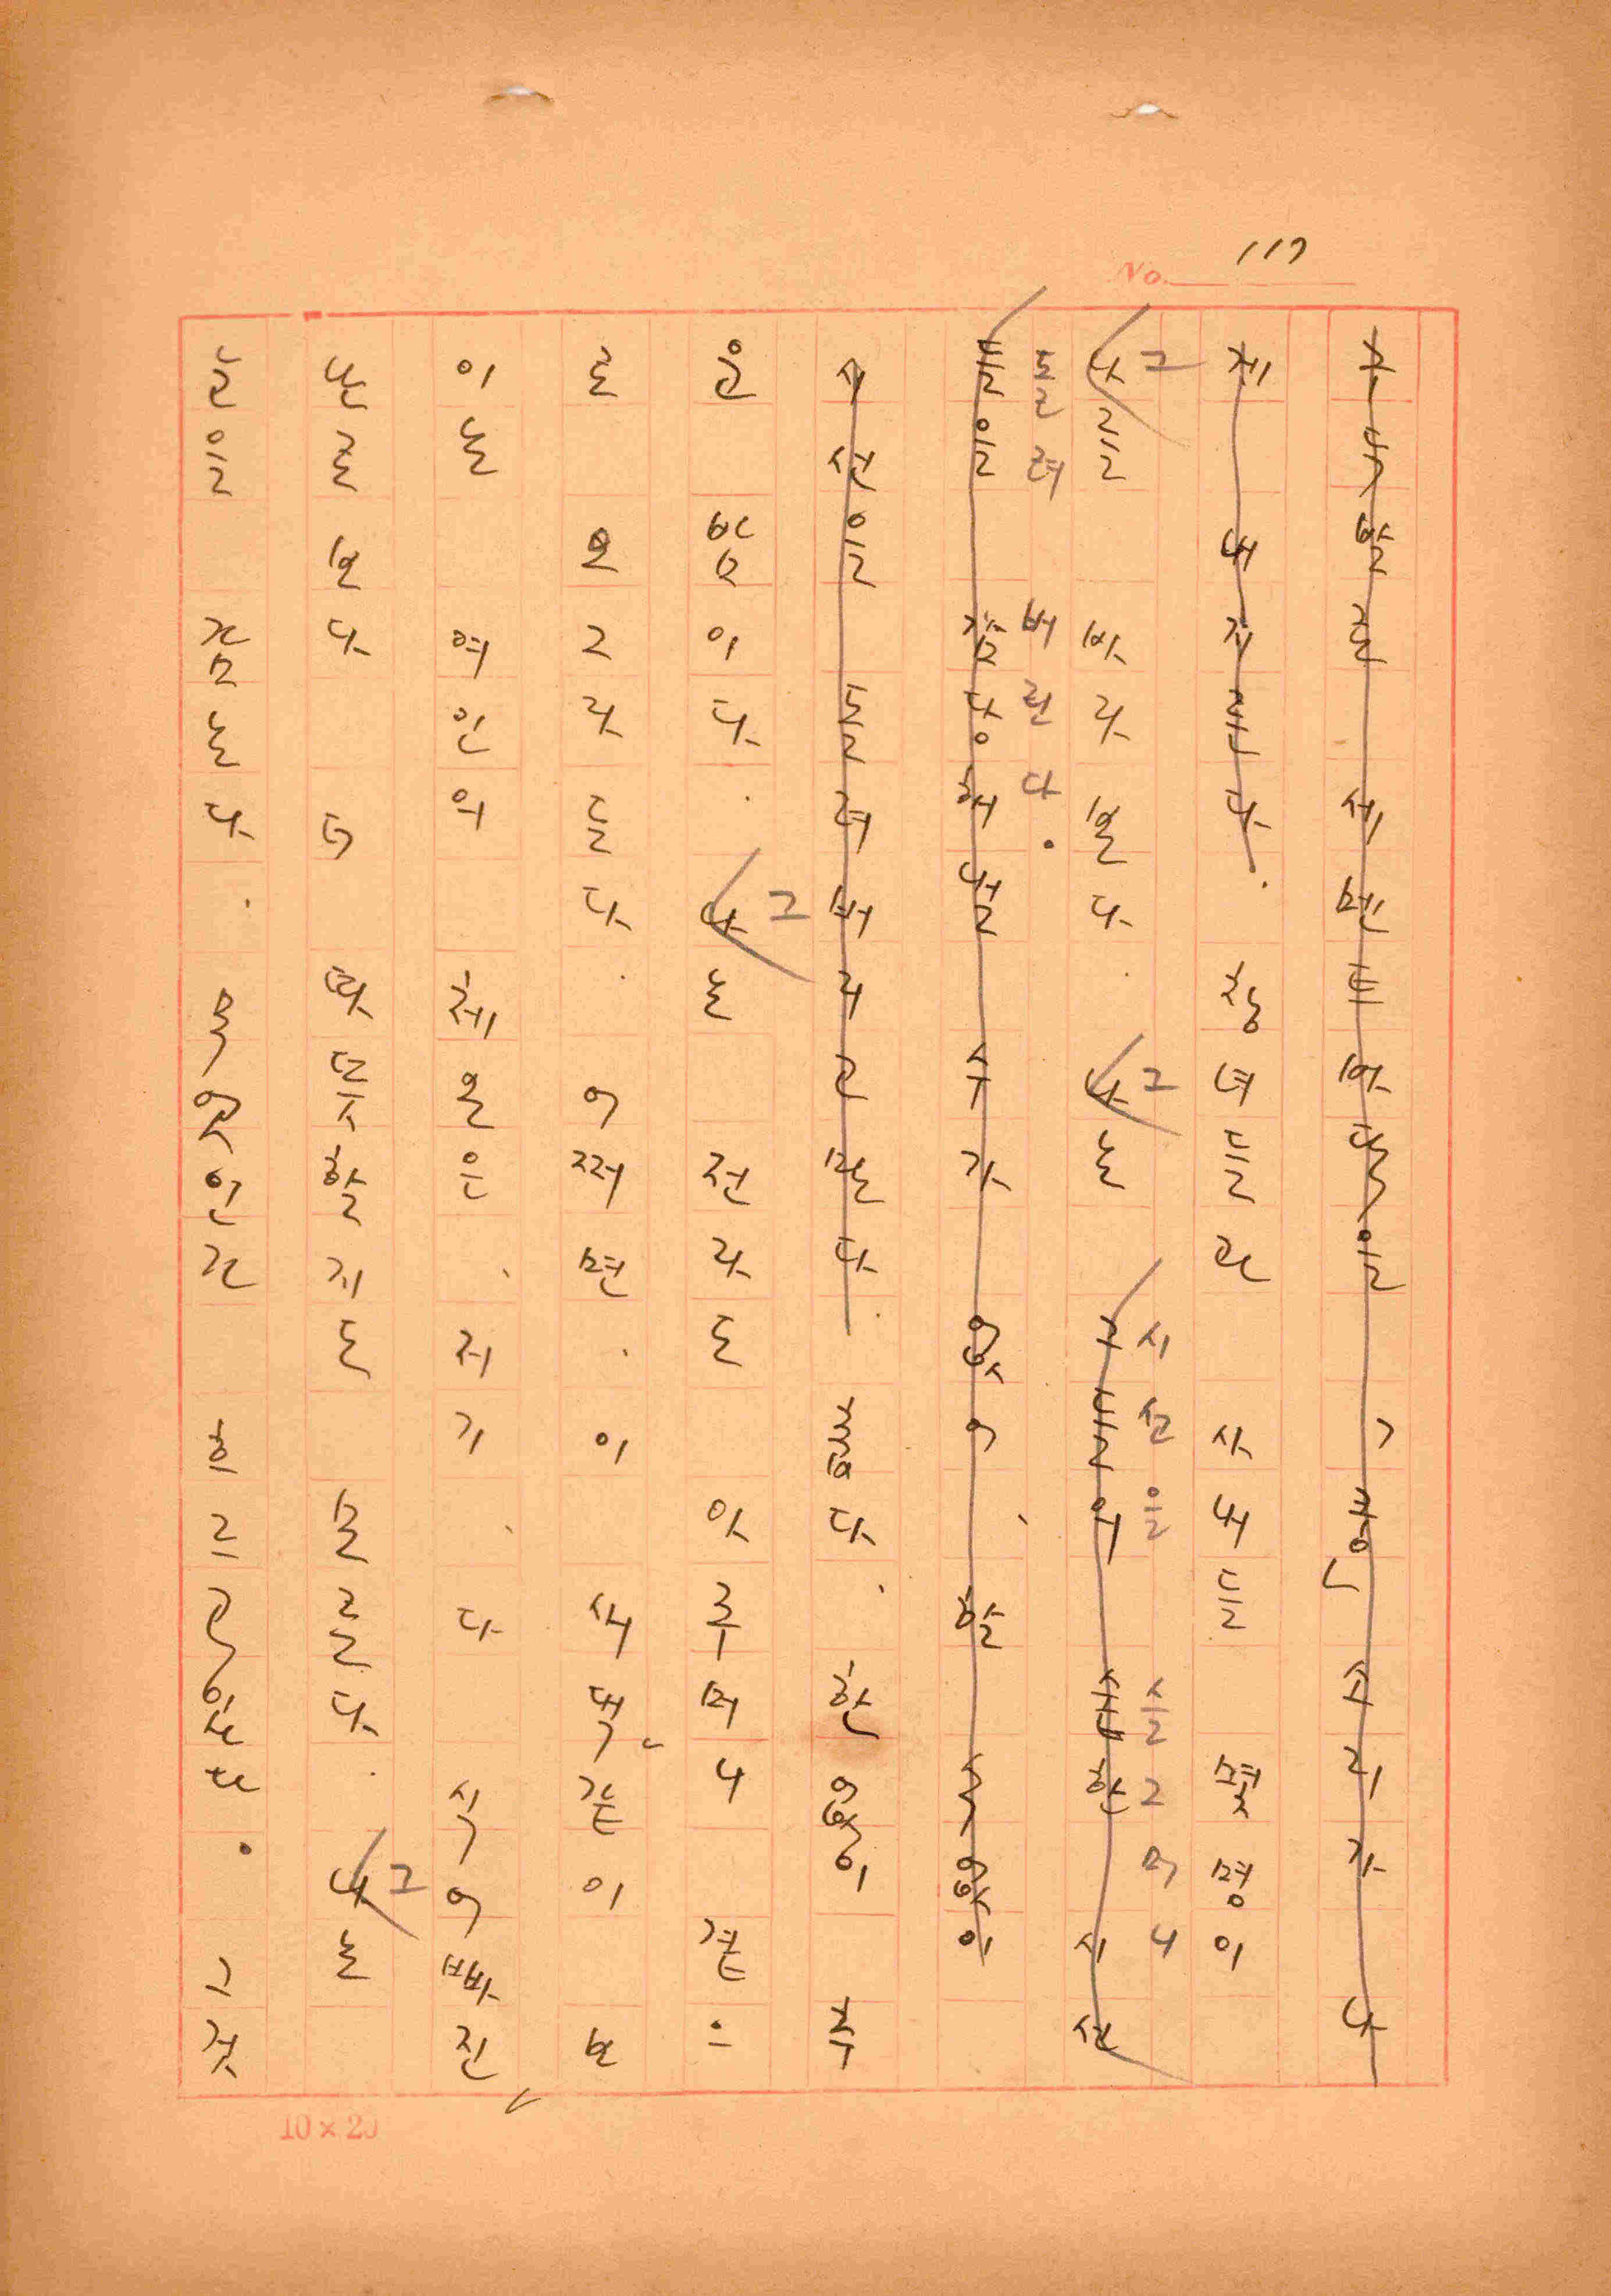 117
No.
구둣발로 세멘트바닥을 「쿵」 소리가 나
게 내지른다. 창녀들과 사내들 몇명이
그
나를 바라본다. 나는 그들의 숱한 시선
그 시선을 슬그머니
돌려 버린다.
들을 감당해낼 수가 없어, 할 수 없이
시선을 돌려버리고 만다. 춥다. 한없이 추
운 밤이다. 나는 전라도 아주머니 곁으
그
로 오그라든다. 어쩌면, 이 새댁같이 보
이는 여인의 체온은, 저기, 다 식어빠진
난로보다 더 따뜻할지도 모른다. 나는
그
눈을 감는다. 무엇인가 흐르고있다. 그것
10×20